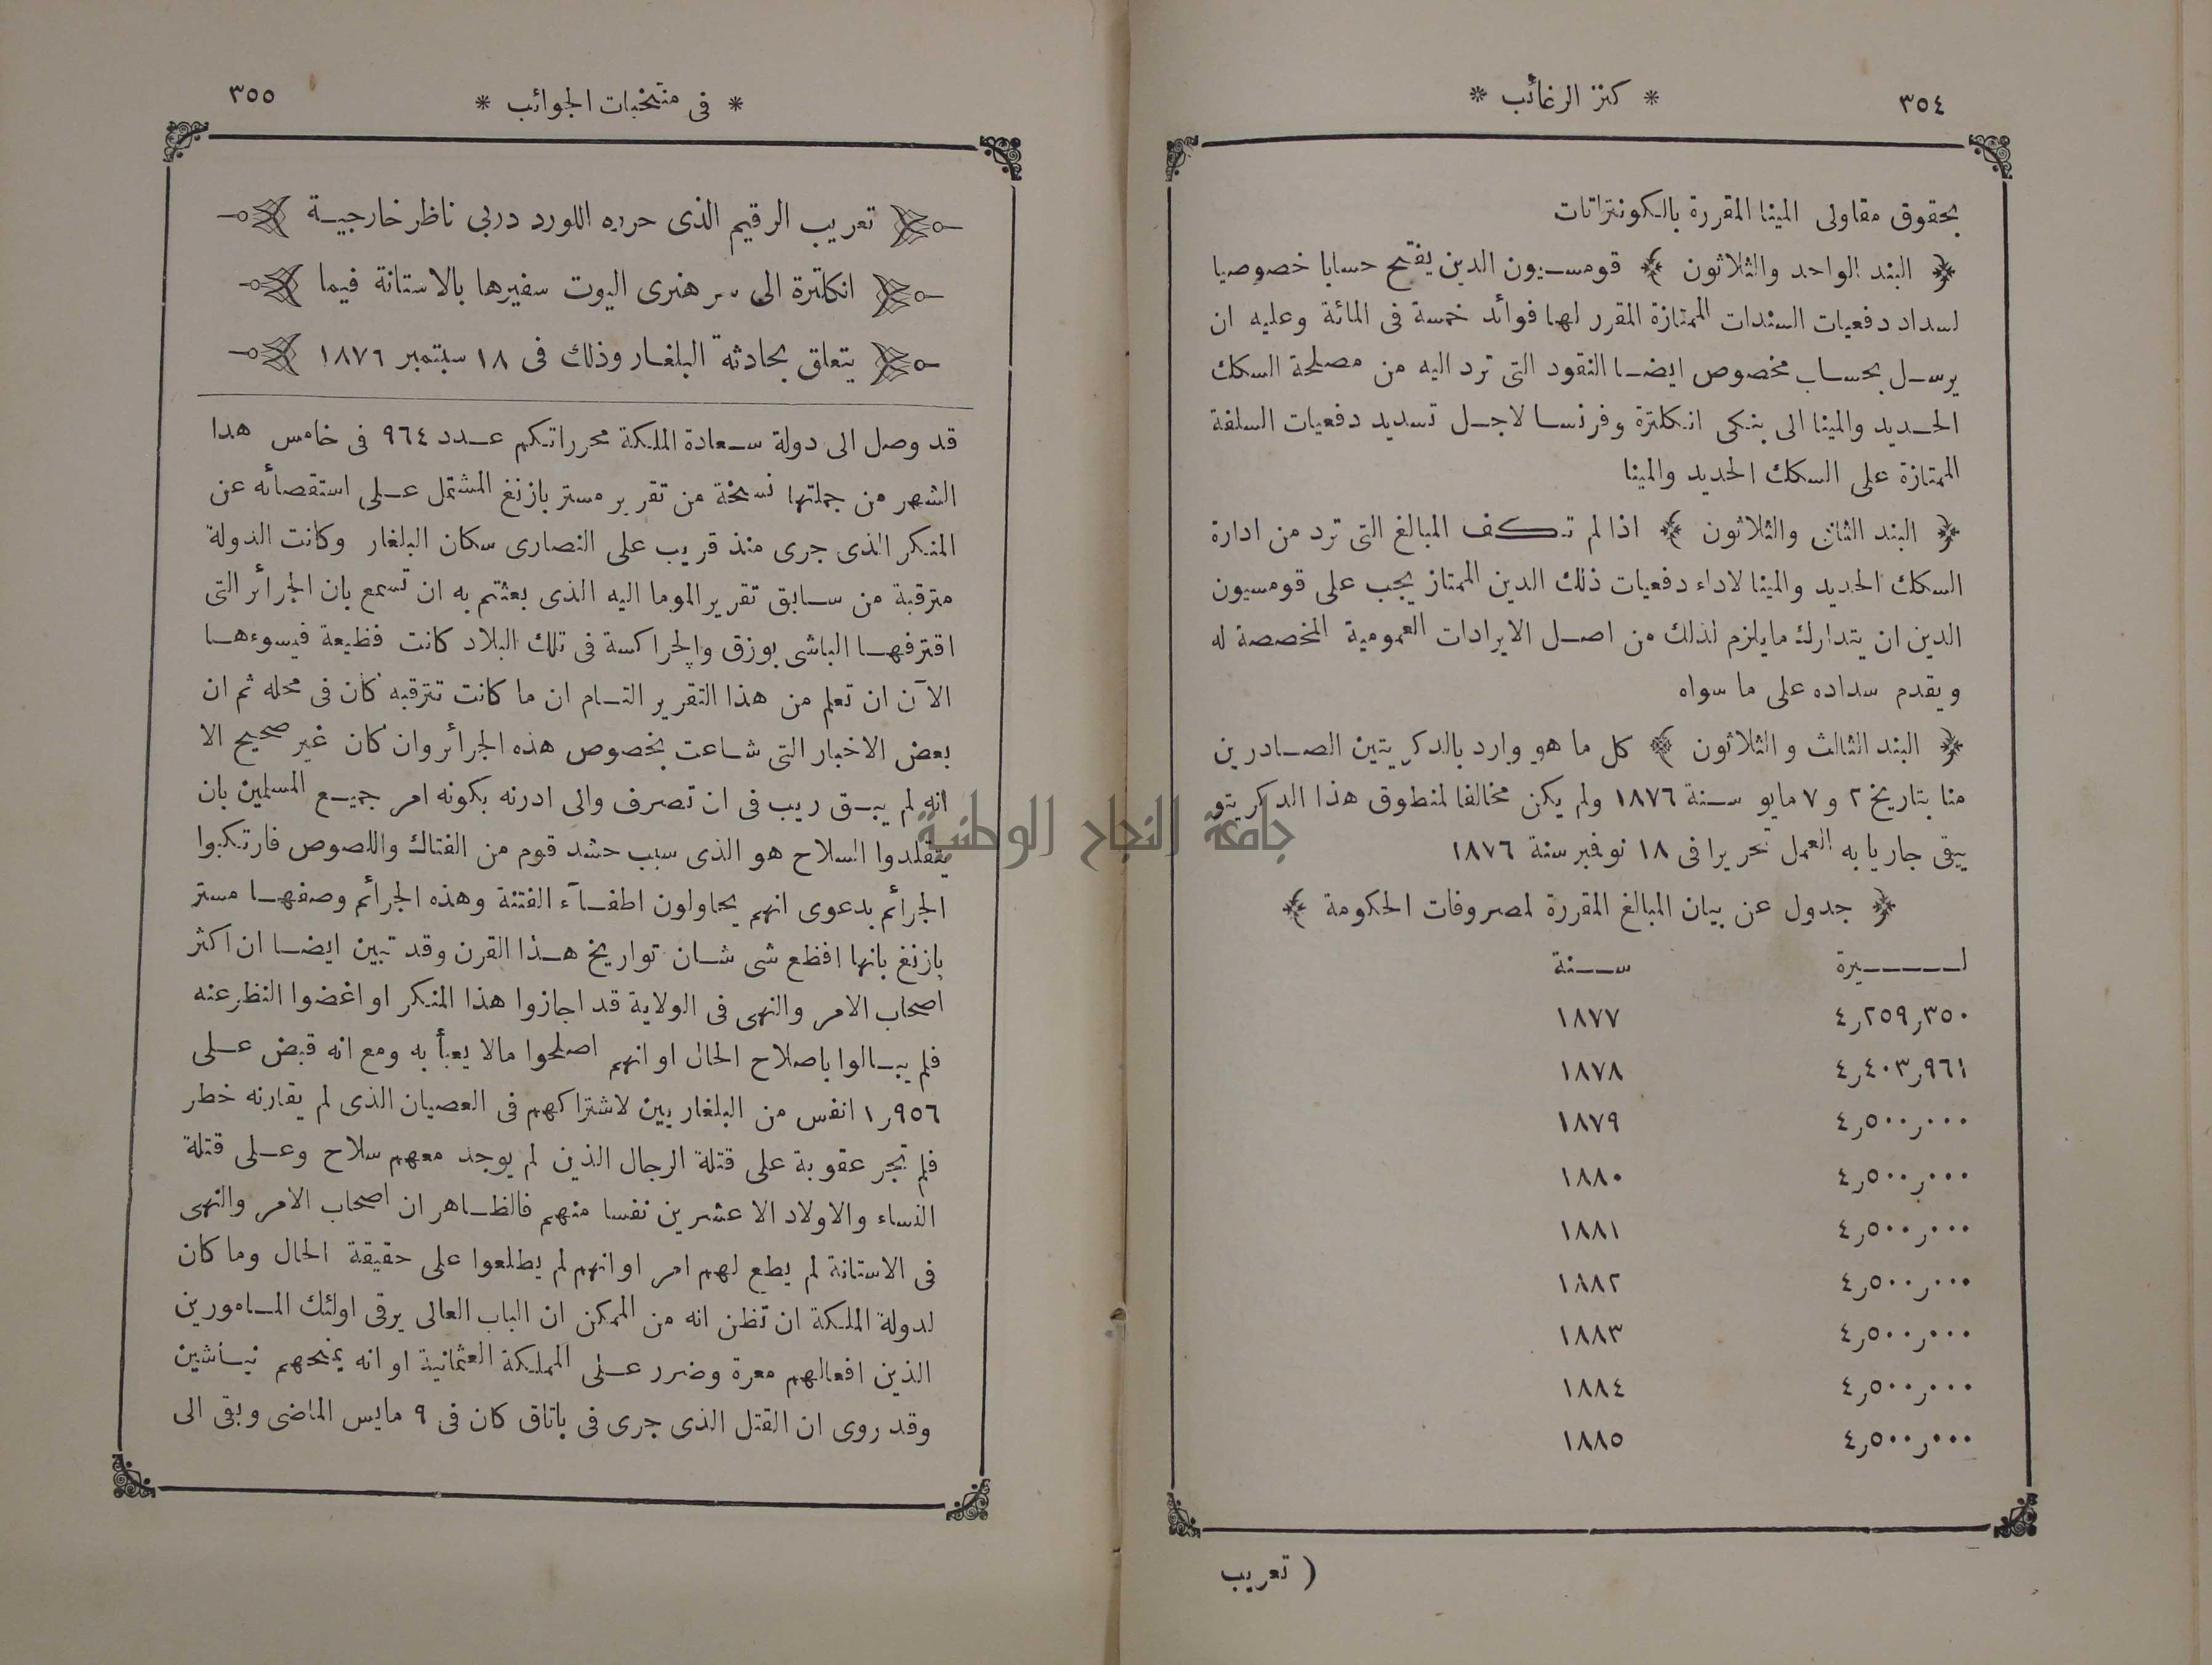 ٣٥٤
* كنز الرغائب *
بحقوق مقاولى المينا المقررة بالكونتراتات
﴿ البند الواحد والثلاثون ﴾ قومسيون الدين يفتح حسابا خصوصيا
لسداد دفعيات السندات الممتازة المقرر لها فوائد خمسة فى المائة وعليه ان
يرسل بحساب مخصوص ايضا النقود التى ترد اليه من مصلحة السكك
الحديد والمينا الى بنكى انكلترة وفرنسا لاجل تسديد دفعيات السلفة
الممتازة على السكك الحديد والمينا
﴿ البند الثانى والثلاثون ﴾ اذا لم تكف المبالغ التى ترد من ادارة
السكك الحديد والمينا لاداء دفعيات ذلك الدين الممتاز يجب على قومسيون
الدين ان يتدارك مايلزم لذلك من اصل الايرادات العمومية المخصصة له
ويقدم سداده على ما سواه
﴿ البند الثالث والثلاثون ﴾ كل ما هو وارد بالدكريتين الصادرين
منا بتاريخ ٢ و ٧ مايو سنة ١٨٧٦ ولم يكن مخالفا لمنطوق هذا الدكريتو
يبقى جاريا به العمل تحريرا فى ١٨ نوفمبر سنة ١٨٧٦
﴿ جدول عن بيان المبالغ المقررة لمصروفات الحكومة ﴾
ليرة سنة
٤٫٢٥٩٫٣٥٠ ١٨٧٧
٤٫٤٠٣٫٩٦١ ١٨٧٨
٤٫٥٠٠٫٠٠٠ ١٨٧٩
٤٫٥٠٠٫٠٠٠ ١٨٨٠
٤٫٥٠٠٫٠٠٠ ١٨٨١
٤٫٥٠٠٫٠٠٠ ١٨٨٢
٤٫٥٠٠٫٠٠٠ ١٨٨٣
٤٫٥٠٠٫٠٠٠ ١٨٨٤
٤٫٥٠٠٫٠٠٠ ١٨٨٥
( تعريب
* فى منتخبات الجوائب *
٣٥٥
تعريب الرقيم الذى حرره اللورد دربى ناظر خارجية
انكلترة الى سر هنرى اليوت سفيرها بالاستانة فيما
يتعلق بحادثة البلغار وذلك فى ١٨ سبتمبر ١٨٧٦
قد وصل الى دولة سعادة الملكة محرراتكم عدد ٩٦٤ فى خامس هذا
الشهر من جملتها نسخة من تقرير مستر بازنغ المشتمل على استقصائه عن
المنكر الذى جرى منذ قريب على النصارى سكان البلغار وكانت الدولة
مترقبة من سابق تقرير الموما اليه الذى بعثتم به ان تسمع بان الجرائر التى
اقترفها الباشى بوزق والچراكسة فى تلك البلاد كانت فظيعة فيسوءها
الآن ان تعلم من هذا التقرير التام ان ما كانت تترقبه كان فى محله ثم ان
بعض الاخبار التى شاعت بخصوص هذه الجرائر وان كان غير صحيح الا
انه لم يبق ريب فى ان تصرف والى ادرنه بكونه امر جميع المسلمين بان
يتقلدوا السلاح هو الذى سبب حشد قوم من الفتاك واللصوص فارتكبوا
الجرائم بدعوى انهم يحاولون اطفاء الفتنة وهذه الجرائم وصفها مستر
بازنغ بانها افظع شى شان تواريخ هذا القرن وقد تبين ايضا ان اكثر
اصحاب الامر والنهى فى الولاية قد اجازوا هذا المنكر او اغضوا النظر عنه
فلم يبالوا باصلاح الحال او انهم اصلحوا مالا يعبأ به ومع انه قبض على
١٫٩٥٦ انفس من البلغاريين لاشتراكهم فى العصيان الذى لم يقارنه خطر
فلم تجر عقوبة على قتلة الرجال الذين لم يوجد معهم سلاح وعلى قتلة
النساء والاولاد الا عشرين نفسا منهم فالظاهر ان اصحاب الامر والنهى
فى الاستانة لم يطع لهم امر او انهم لم يطلعوا على حقيقة الحال وما كان
لدولة الملكة ان تظن انه من الممكن ان الباب العالى يرقى اولئك المامورين
الذين افعالهم معرة وضرر على المملكة العثمانية او انه يمنحهم نياشين
وقد روى ان القتل الذى جرى فى باتاق كان فى ٩ مايس الماضى وبقى الى
جامعة النجاح الوطنية